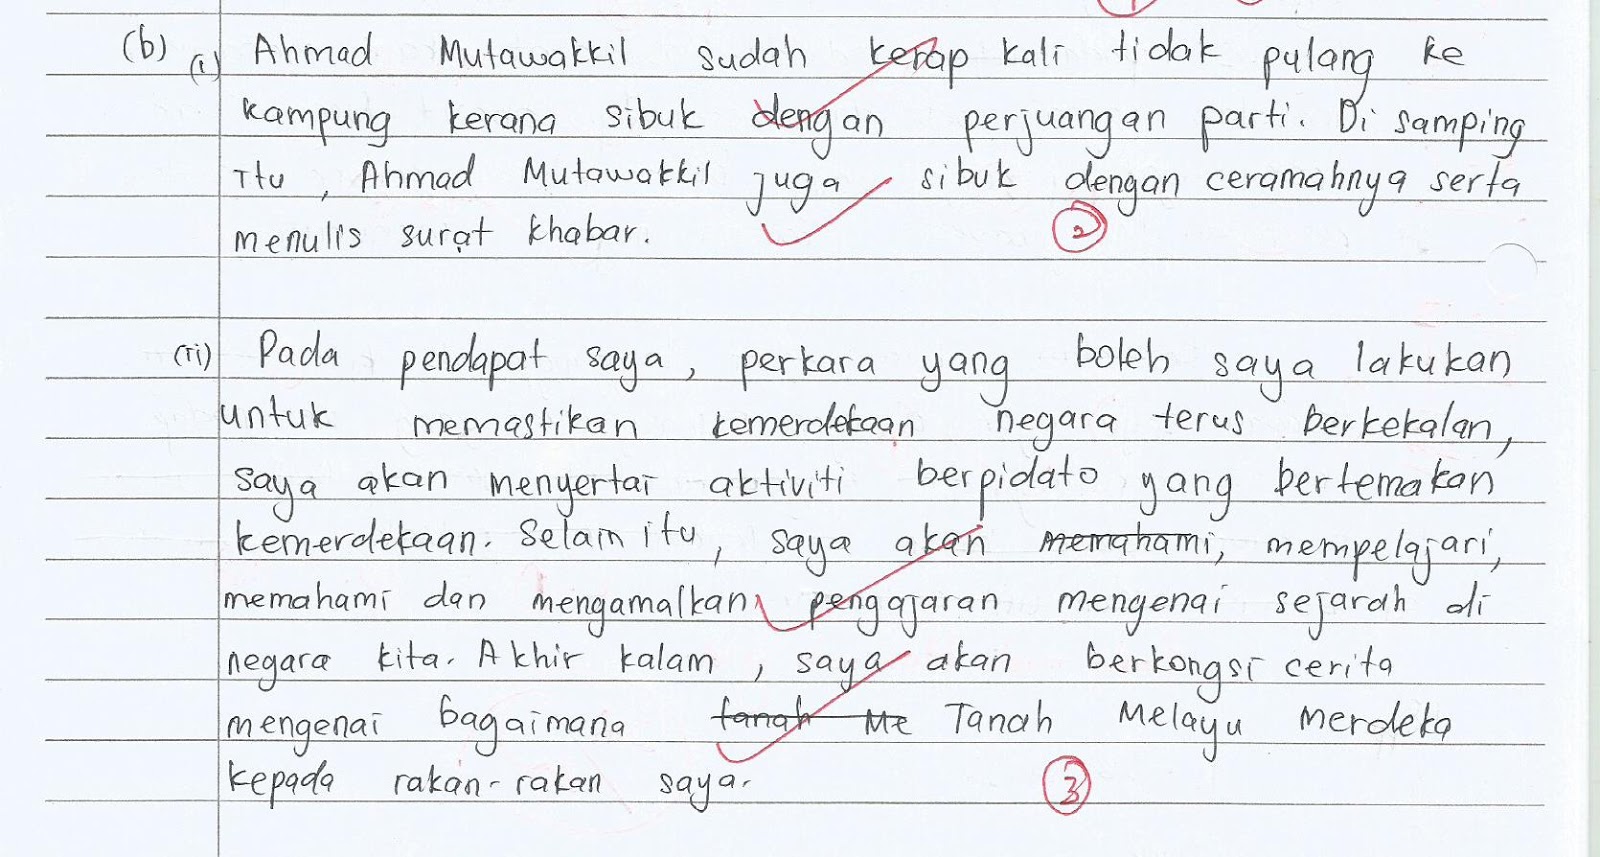 (b) (i) Ahmad Mutawakkil sudah kerap kali tidak pulang ke
kampung kerana sibuk dengan perjuangan parti. Di samping
Itu, Ahmad Mutawakkil juga sibuk dengan ceramahnya serta
menulis surat khabar.
2
(ii) Pada pendapat saya, perkara yang boleh saya lakukan
untuk memastikan kemerdekaan negara terus berkekalan,
saya akan menyertai aktiviti berpidato yang bertemakan
kemerdekaan. Selain itu, saya akan memahami, mempelajari,
memahami dan mengamalkan pengajaran mengenai sejarah di
negara kita. Akhir kalam, saya akan berkongsi cerita
mengenai bagaimana tanah Me Tanah Melayu Merdeka
kepada rakan-rakan saya.
3